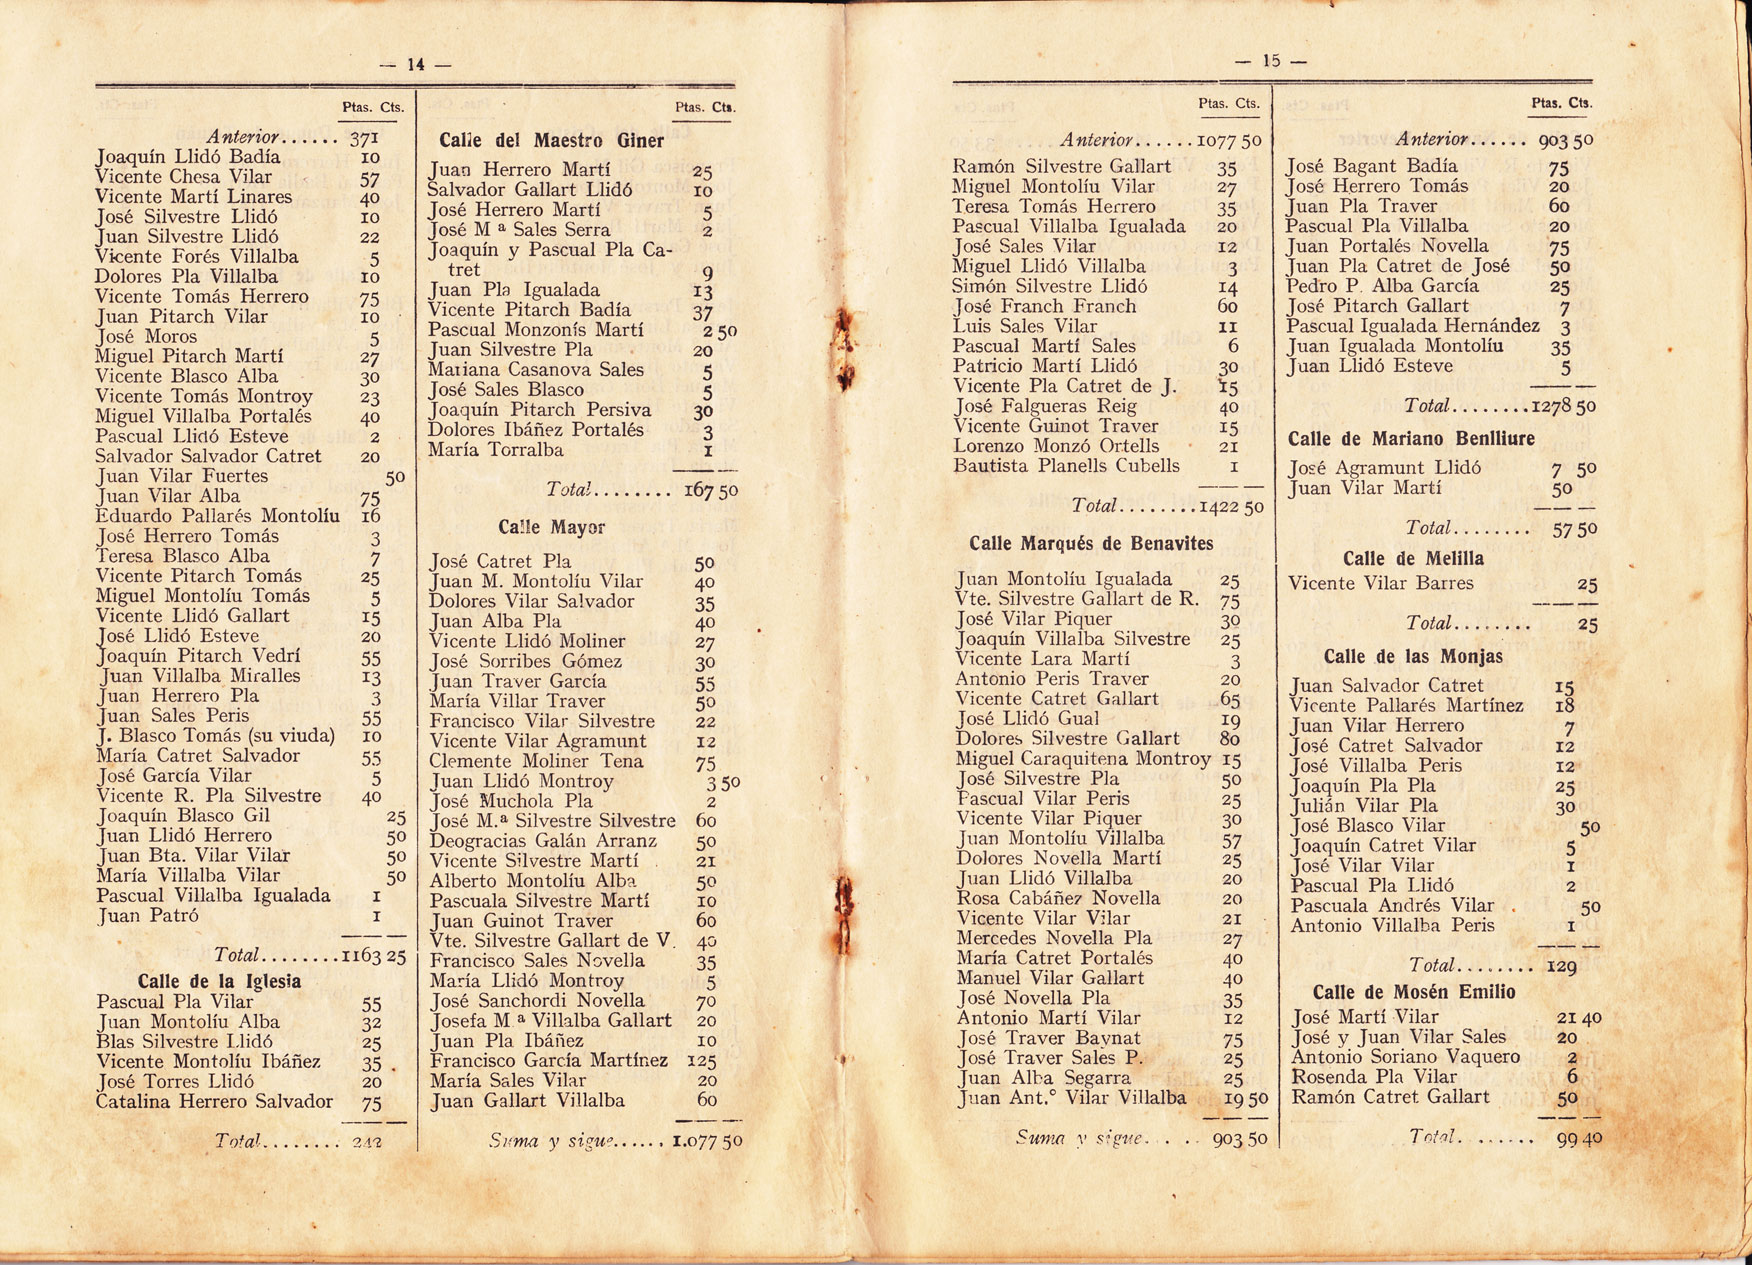 — 14 —
Ptas. Cts.
Anterior...... 371
Joaquín Llidó Badía 10
Vicente Chesa Vilar 57
Vicente Martí Linares 40
José Silvestre Llidó 10
Juan Silvestre Llidó 22
Vicente Forés Villalba 5
Dolores Pla Villalba 10
Vicente Tomás Herrero 75
Juan Pitarch Vilar 10
José Moros 5
Miguel Pitarch Martí 27
Vicente Blasco Alba 30
Vicente Tomás Montroy 23
Miguel Villalba Portalés 40
Pascual Llidó Esteve 2
Salvador Salvador Catret 20
Juan Vilar Fuertes 50
Juan Vilar Alba 75
Eduardo Pallarés Montolíu 16
José Herrero Tomás 3
Teresa Blasco Alba 7
Vicente Pitarch Tomás 25
Miguel Montolíu Tomás 5
Vicente Llidó Gallart 15
José Llidó Esteve 20
Joaquín Pitarch Vedrí 55
Juan Villalba Miralles 13
Juan Herrero Pla 3
Juan Sales Peris 55
J. Blasco Tomás (su viuda) 10
María Catret Salvador 55
José García Vilar 5
Vicente R. Pla Silvestre 40
Joaquín Blasco Gil 25
Juan Llidó Herrero 50
Juan Bta. Vilar Vilar 50
María Villalba Vilar 50
Pascual Villalba Igualada 1
Juan Patró 1
Total........1163 25
Calle de la Iglesia
Pascual Pla Vilar 55
Juan Montolíu Alba 32
Blas Silvestre Llidó 25
Vicente Montolíu Ibáñez 35
José Torres Llidó 20
Catalina Herrero Salvador 75
Total........ 242
Ptas. Cts.
Calle del Maestro Giner
Juan Herrero Martí 25
Salvador Gallart Llidó 10
José Herrero Martí 5
José M ª Sales Serra 2
Joaquín y Pascual Pla Ca-
tret 9
Juan Pla Igualada 13
Vicente Pitarch Badía 37
Pascual Monzonís Martí 2 50
Juan Silvestre Pla 20
Mariana Casanova Sales 5
José Sales Blasco 5
Joaquín Pitarch Persiva 30
Dolores Ibáñez Portalés 3
María Torralba 1
Total........ 167 50
Calle Mayor
José Catret Pla 50
Juan M. Montolíu Vilar 40
Dolores Vilar Salvador 35
Juan Alba Pla 40
Vicente Llidó Moliner 27
José Sorribes Gómez 30
Juan Traver García 55
María Villar Traver 50
Francisco Vilar Silvestre 22
Vicente Vilar Agramunt 12
Clemente Moliner Tena 75
Juan Llidó Montroy 3 50
José Muchola Pla 2
José M.ª Silvestre Silvestre 60
Deogracias Galán Arranz 50
Vicente Silvestre Martí 21
Alberto Montolíu Alba 50
Pascuala Silvestre Martí 10
Juan Guinot Traver 60
Vte. Silvestre Gallart de V. 40
Francisco Sales Novella 35
María Llidó Montroy 5
José Sanchordi Novella 70
Josefa M ª Villalba Gallart 20
Juan Pla Ibáñez 10
Francisco García Martínez 125
María Sales Vilar 20
Juan Gallart Villalba 60
Suma y sigue...... 1.077 50
— 15 —
Ptas. Cts.
Anterior......1077 50
Ramón Silvestre Gallart 35
Miguel Montolíu Vilar 27
Teresa Tomás Herrero 35
Pascual Villalba Igualada 20
José Sales Vilar 12
Miguel Llidó Villalba 3
Simón Silvestre Llidó 14
José Franch Franch 60
Luis Sales Vilar 11
Pascual Martí Sales 6
Patricio Martí Llidó 30
Vicente Pla Catret de J. 15
José Falgueras Reig 40
Vicente Guinot Traver 15
Lorenzo Monzó Ortells 21
Bautista Planells Cubells 1
Total........1422 50
Calle Marqués de Benavites
Juan Montolíu Igualada 25
Vte. Silvestre Gallart de R. 75
José Vilar Piquer 30
Joaquín Villalba Silvestre 25
Vicente Lara Martí 3
Antonio Peris Traver 20
Vicente Catret Gallart 65
José Llidó Gual 19
Dolores Silvestre Gallart 80
Miguel Caraquitena Montroy 15
José Silvestre Pla 50
Pascual Vilar Peris 25
Vicente Vilar Piquer 30
Juan Montolíu Villalba 57
Dolores Novella Martí 25
Juan Llidó Villalba 20
Rosa Cabáñez Novella 20
Vicente Vilar Vilar 21
Mercedes Novella Pla 27
María Catret Portalés 40
Manuel Vilar Gallart 40
José Novella Pla 35
Antonio Martí Vilar 12
José Traver Baynat 75
José Traver Sales P. 25
Juan Alba Segarra 25
Juan Ant.º Vilar Villalba 19 50
Suma y sigue. . . . 903 50
Ptas. Cts.
Anterior...... 903 50
José Bagant Badía 75
José Herrero Tomás 20
Juan Pla Traver 60
Pascual Pla Villalba 20
Juan Portalés Novella 75
Juan Pla Catret de José 50
Pedro P. Alba García 25
José Pitarch Gallart 7
Pascual Igualada Hernández 3
Juan Igualada Montolíu 35
Juan Llidó Esteve 5
Total........1278 50
Calle de Mariano Benlliure
José Agramunt Llidó 7 50
Juan Vilar Martí 50
Total........ 57 50
Calle de Melilla
Vicente Vilar Barres 25
Total........ 25
Calle de las Monjas
Juan Salvador Catret 15
Vicente Pallarés Martínez 18
Juan Vilar Herrero 7
José Catret Salvador 12
José Villalba Peris 12
Joaquín Pla Pla 25
Julián Vilar Pla 30
José Blasco Vilar 50
Joaquín Catret Vilar 5
José Vilar Vilar 1
Pascual Pla Llidó 2
Pascuala Andrés Vilar 50
Antonio Villalba Peris 1
Total........ 129
Calle de Mosén Emilio
José Martí Vilar 21 40
José y Juan Vilar Sales 20
Antonio Soriano Vaquero 2
Rosenda Pla Vilar 6
Ramón Catret Gallart 50
Total........ 99 40